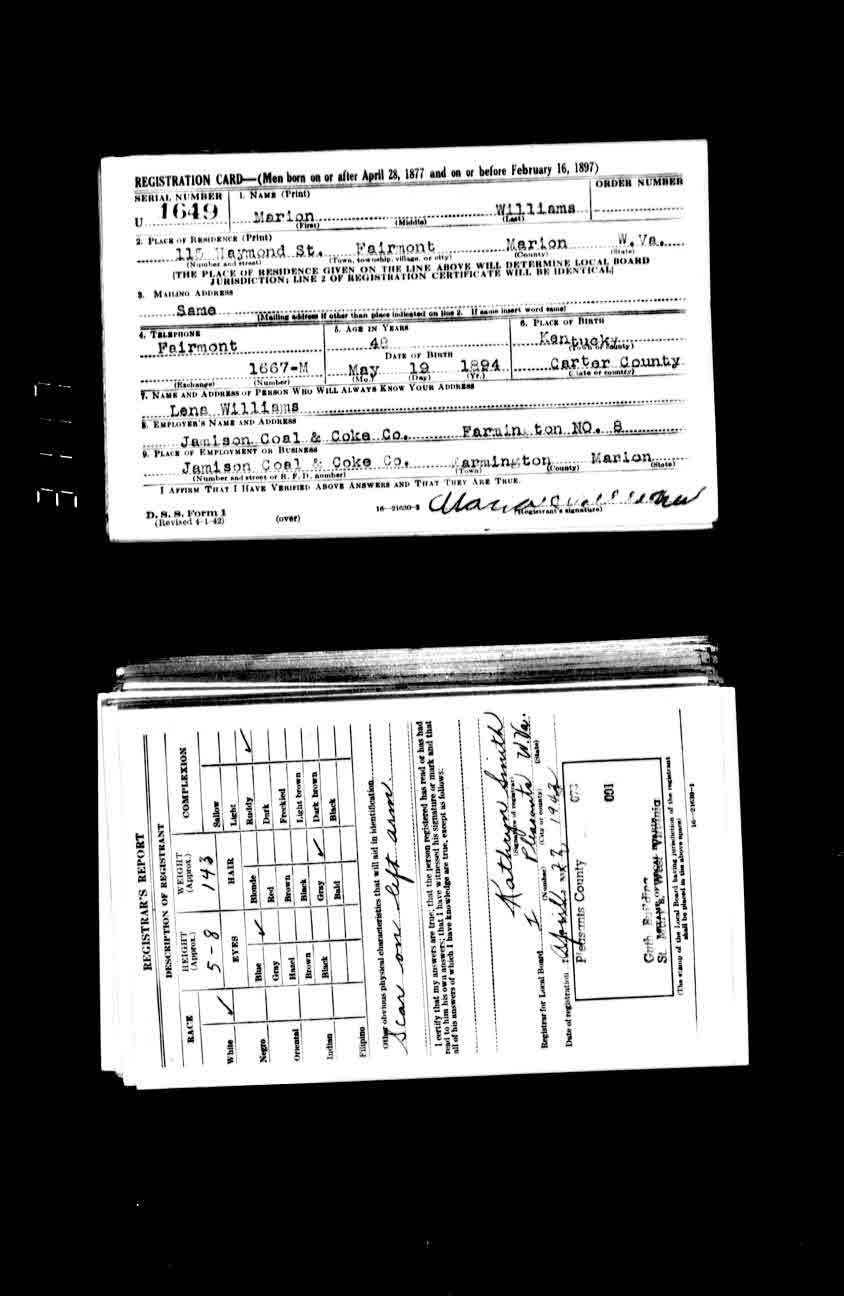 REGISTRATION CARD—(Men born on or after April 28, 1877 and on or before February 16, 1897)
SERIAL NUMBER 1. NAME (Print) ORDER NUMBER
U 1649 Marion Williams
(First) (Middle) (Last)
2. PLACE OF RESIDENCE (Print)
115 Haymond St. Fairmont Marion W.Va.
(Number and street) (Town, township, village, or city) (County) (State)
[THE PLACE OF RESIDENCE GIVEN ON THE LINE ABOVE WILL DETERMINE LOCAL BOARD
JURISDICTION; LINE 2 OF REGISTRATION CERTIFICATE WILL BE IDENTICAL]
3. MAILING ADDRESS
Same
[Mailing address if other than place indicated on line 2. If same insert word same]
4. TELEPHONE 5. AGE IN YEARS 6. PLACE OF BIRTH
Fairmont Kentucky
DATE OF BIRTH (Town or county)
1667-M May 19 1894 Carter County
(Exchange) (Number) (Mo.) (Day) (Yr.) (State or country)
7. NAME AND ADDRESS OF PERSON WHO WILL ALWAYS KNOW YOUR ADDRESS
Lena Williams
8. EMPLOYER'S NAME AND ADDRESS
Jamison Coal & Coke Co. Farmin ton NO. 8
9. PLACE OF EMPLOYMENT OR BUSINESS
Jamison Coal & Coke Co. armington Marion
(Number and street or R. F. D. number) (Town) (County) (State)
I AFFIRM THAT I HAVE VERIFIED ABOVE ANSWERS AND THAT THEY ARE TRUE.
D. S. S. Form 1
(Revised 4-1-42) (over) 16—21630-2 (Registrant's signature)
REGISTRAR'S REPORT
DESCRIPTION OF REGISTRANT
RACE HEIGHT (Approx.) WEIGHT (Approx.) COMPLEXION
5-8 143 Sallow
White ✓ EYES HAIR Light
Negro Blue ✓ Blonde Ruddy ✓
Gray Red Dark
Oriental Hazel Brown Freckled
Brown Black Light brown
Indian Black Gray ✓ Dark brown
Bald Black
Filipino
Other obvious physical characteristics that will aid in identification
Scar on left arm.
I certify that my answers are true; that the person registered has read or has had
read to him his own answers; that I have witnessed his signature or mark and that
all of his answers of which I have knowledge are true, except as follows:
Kathryn Smith
(Signature of registrar)
Registrar for Local Board 1 Pleasants W.Va.
(Number) (City or county) (State)
Date of registration April 27, 1942
Pleasants County 073
001
St. Marys, West Virginia
(The stamp of the Local Board having jurisdiction of the registrant
shall be placed in the above space)
16—21630-1